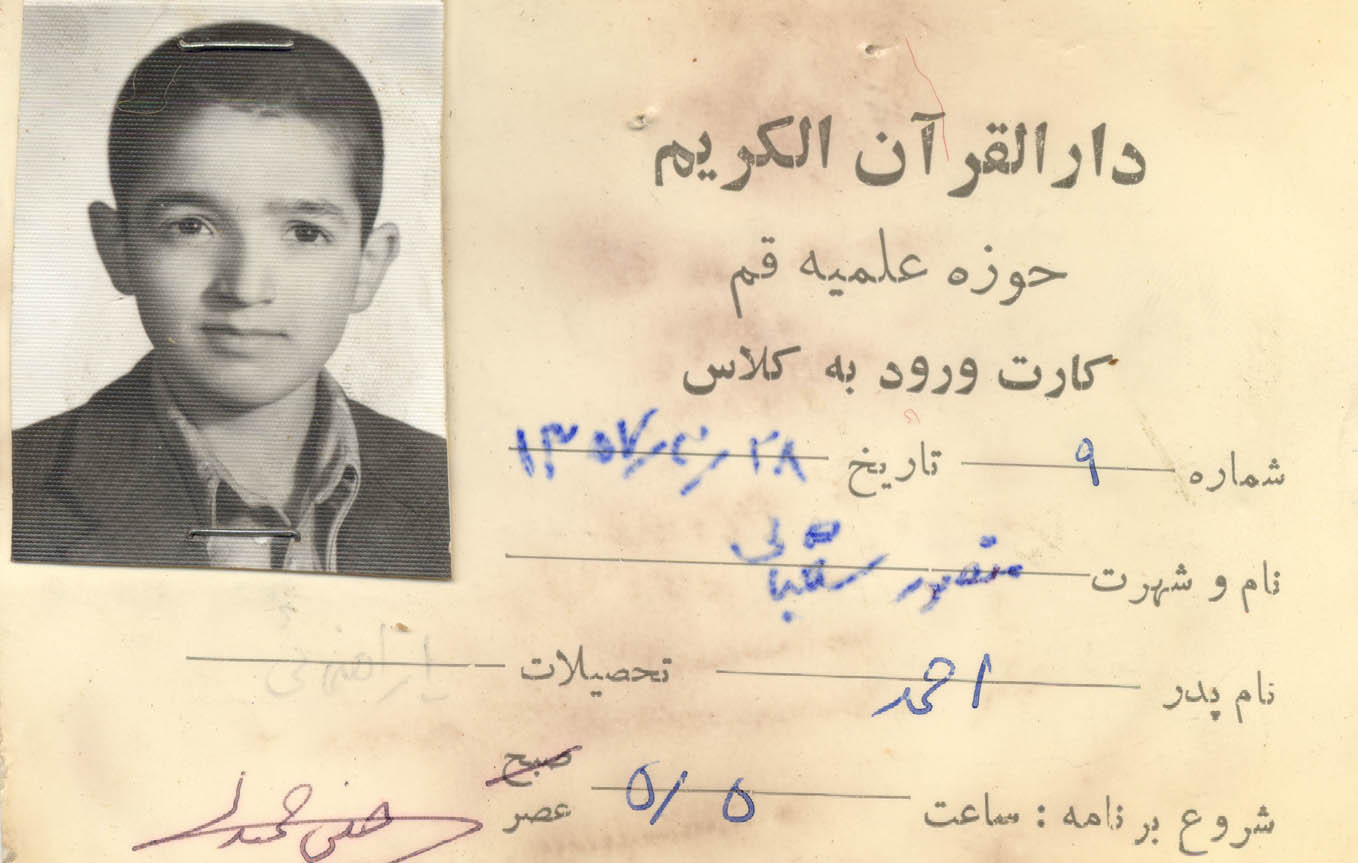 دارالقرآن الکریم
حوزه علمیه قم
کارت ورود به کلاس
شماره ۹ تاریخ ۲۸ر۴ر۱۳۵۷
نام و شهرت منصور
نام پدر احمد تحصیلات
شروع برنامه : ساعت ۵/۵ صبح
عصر